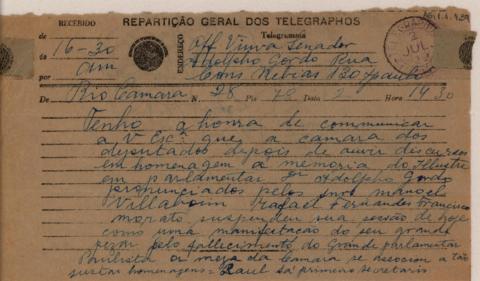 REPARTIÇÃO GERAL DOS TELEGRAPHOS
RECEBIDO
Telegramma
de
16-30
ás
am
por
ENDEREÇO
Off Viuva Senador
Adolpho Gordo Rua
Cons Nebias 130 spaulo
JUL
De Rio Camara N. 28 Pls 78 Data 2 Hora 14 30
Tenho a honra de communicar
a V Exª que a camara dos
deputados depois de ouvir discursos
em homenagem a memoria do Illustre
parlmentar Dr Adolpho Gordo
pronunciados pelos snrs manoel
Villaboim Rafael Fernandes Francisco
morato suspendeu sua sessão de hoje
como uma manifestação do seu grande
pezar pelo fallecimento do Grande parlamentar
Paulista a meza da Camara se associou a tão
justas homenagens = Raul Sá primeiro secretario